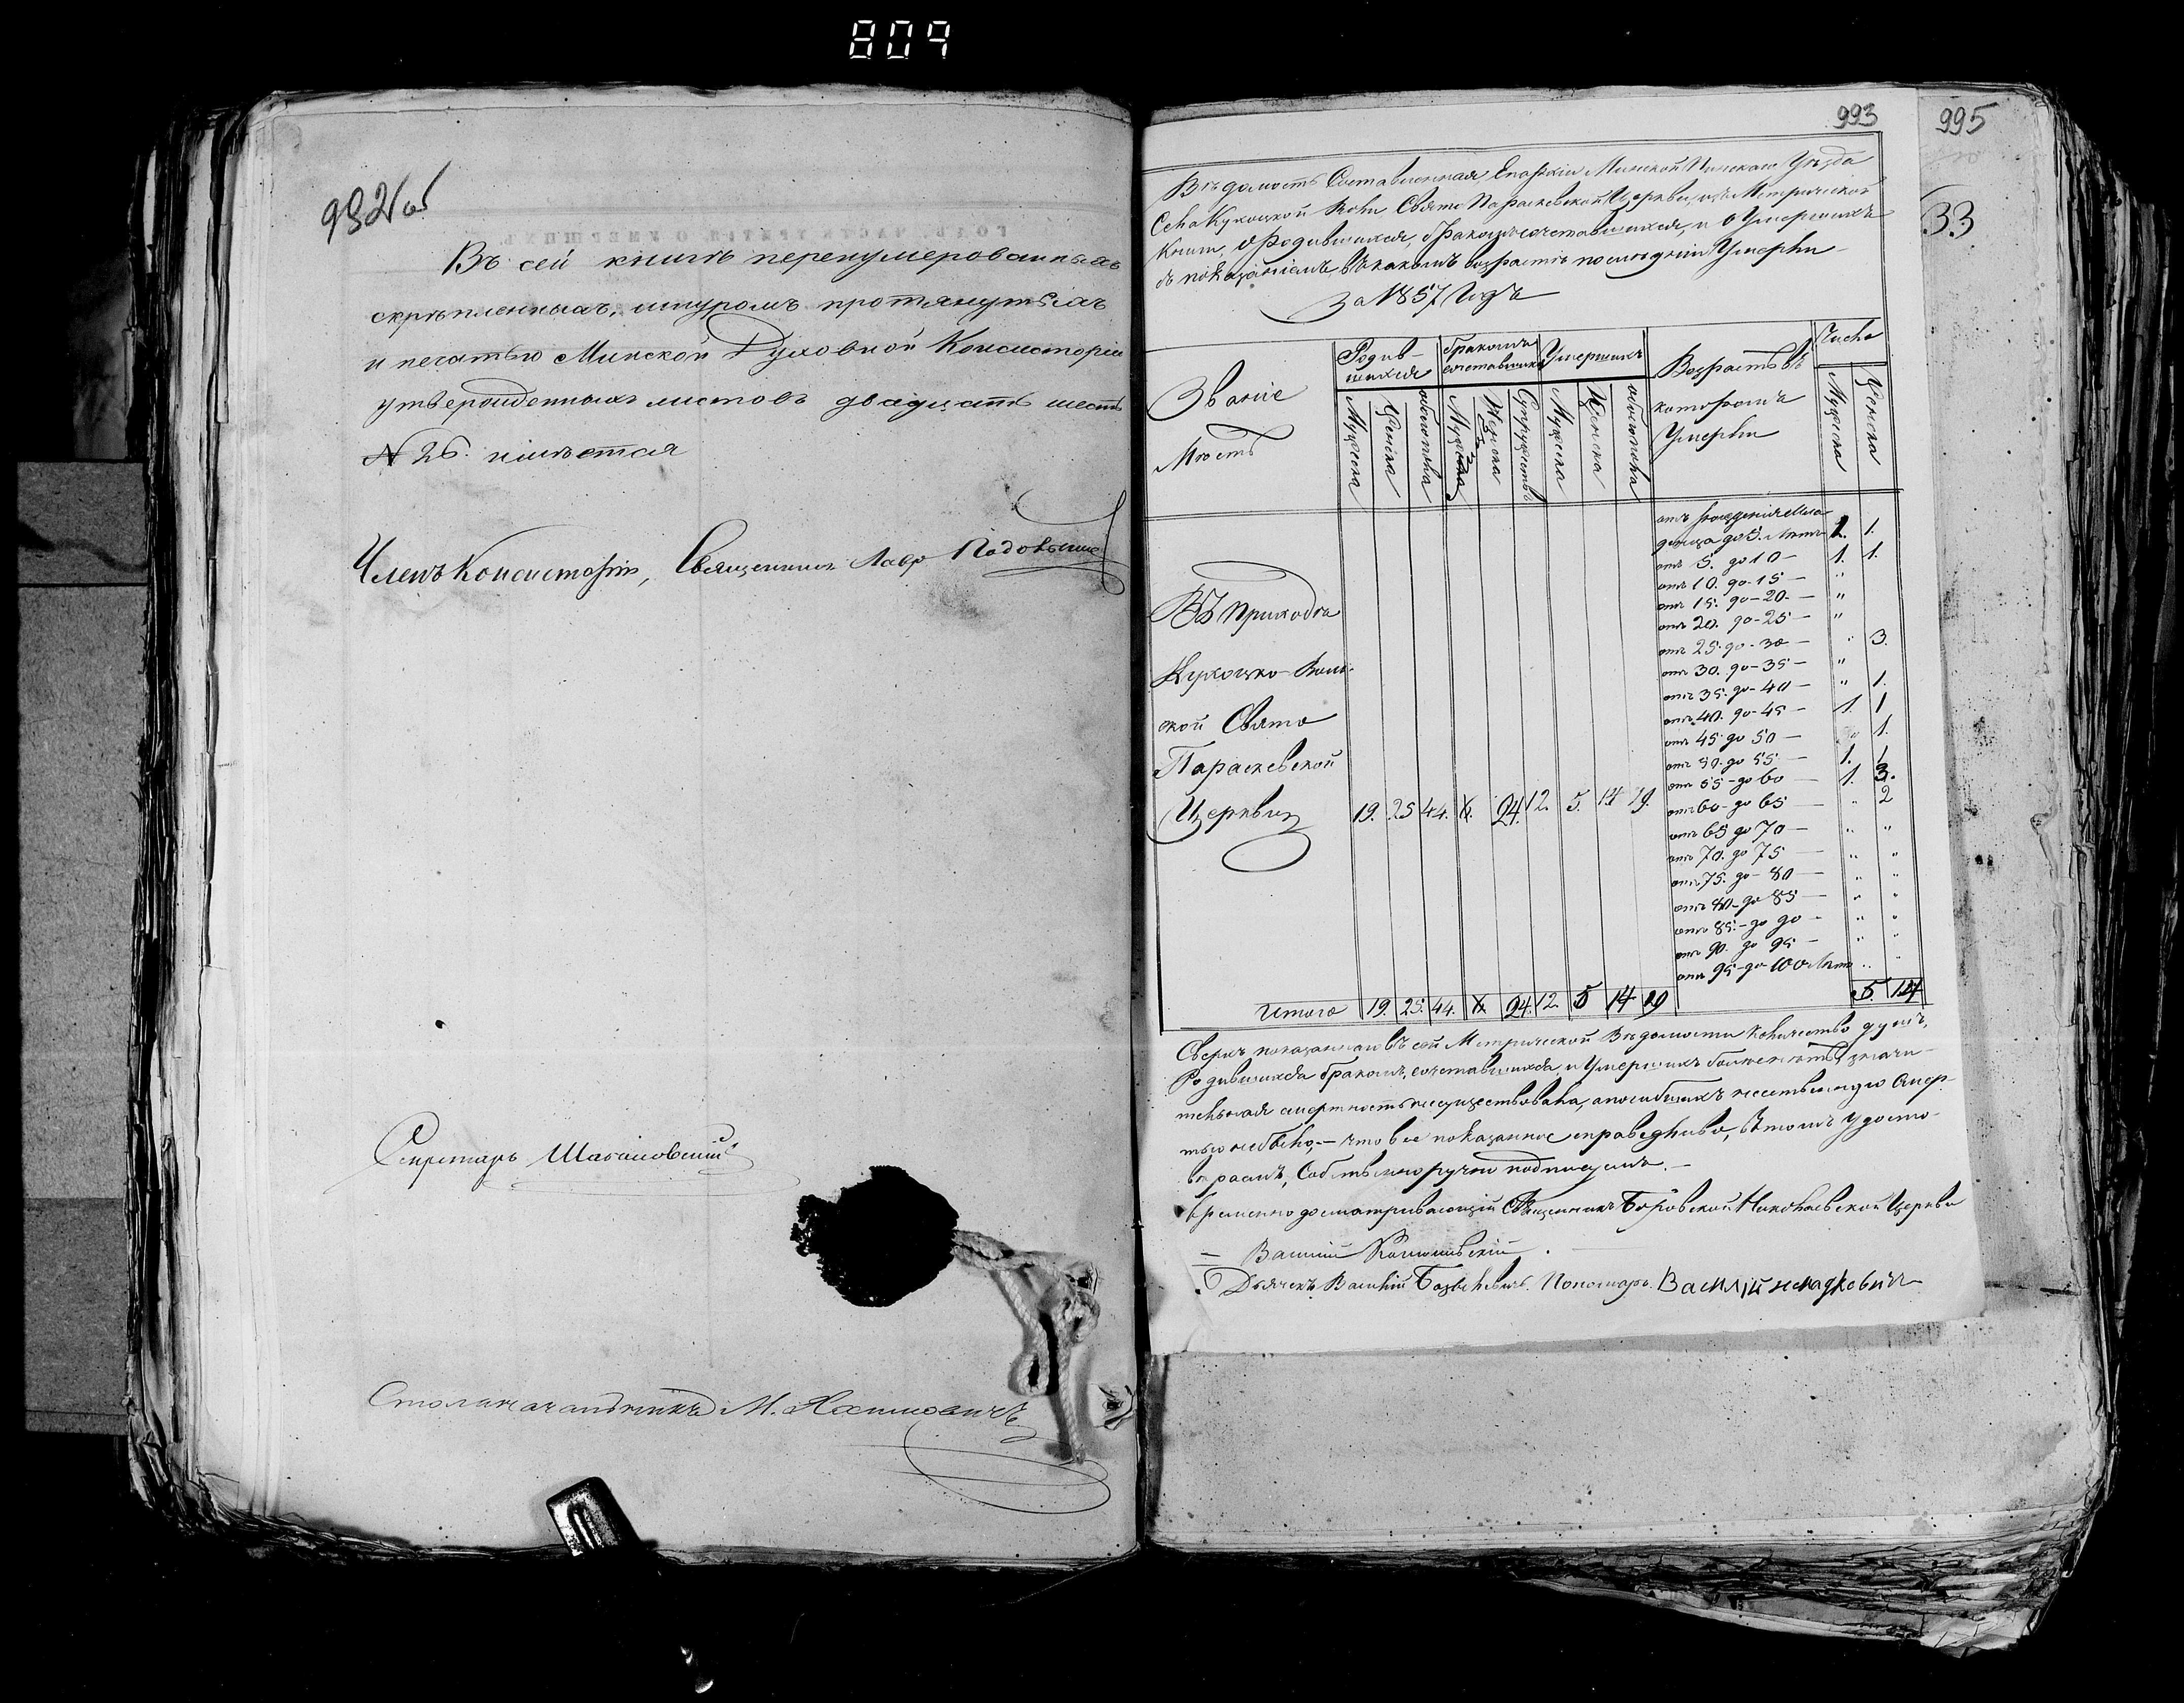 809
992 об
Въ сей книгѣ перенумерованныхъ
скрѣпленныхъ, шнуромъ протянутыхъ
и печатью Минской Духовной Консисторіи
утвержденныхъ листовъ двадцать шесть
№ 26. имѣется
Членъ Консисторіи, Священникъ Лавр
Секретарь
М.
993
995
33
Вѣдомость Составленная Епархіи Минской Пинскаго Уѣзда
Села Кухоцкой Воли Свято Параскевской Церкви, изъ Метрической
Книги, о Родившихся, бракомъ сочетавшихся, и о Умершихъ
съ показаніемъ, въ какомъ возрастѣ последніи Умерли
За 1857 Годъ
Званіе
Мѣстъ
Родив-
шихся
бракомъ
сочетавшихся
Умершихъ
Возрастъ въ
которомъ
Умерли
Числа
Мужеска
Женска
обоего пола
Мужеска
Женска
Супружествъ
Мужеска
Женска
обоего пола
Мужеска
Женска
отъ рожденія Мла-
денца до 5. Лѣтъ 1. 1.
отъ 5. до 10 — 1. 1.
отъ 10. до 15 — "
отъ 15. до 20. — "
отъ 20. до 25 — "
отъ 25. до 30 — " 3.
отъ 30. до 35 — "
отъ 35. до 40 — " 1.
отъ 40. до 45 — 1. 1
отъ 45 до 50 — 1.
отъ 50. до 55 — 1. 1
отъ 55 до 60 — 1. 3.
отъ 60 до 65 — " 2
отъ 65 до 70 — " "
отъ 70. до 75 — " "
отъ 75. до 80 — " "
отъ 80 до 85 — " "
отъ 85 до 90 — " "
отъ 90. до 95 — " "
отъ 95 до 100 Лѣтъ " "
Въ Приходѣ
Кухоцко-Воль-
ской Свято
Параскевской
Церкви 19. 25 44. 24. 12. 5. 14 19.
Итого 19. 25. 44. 24. 12. 5 14 19 5. 14
Сверхъ показаннаго въ сей Метрической Вѣдомости количества душъ,
Родившихся бракомъ, сочетавшихся, и Умершихъ болѣе нѣтъ, значи-
тельная смертность несуществовала, а погибшихъ неестественною Смер-
тью небыло, — что все показанное справедливо, въ томъ удосто-
вѣряемъ, Собственноручно подписуемъ. —
Временно досматривающій Священникъ Боровской Николаевской Церкви
Василій
Дьячекъ Василій Пономарь Василій